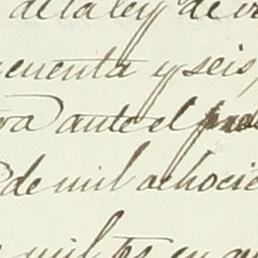 de la ley de
cuenta y seis,
ante el
de mil ochocie
mil